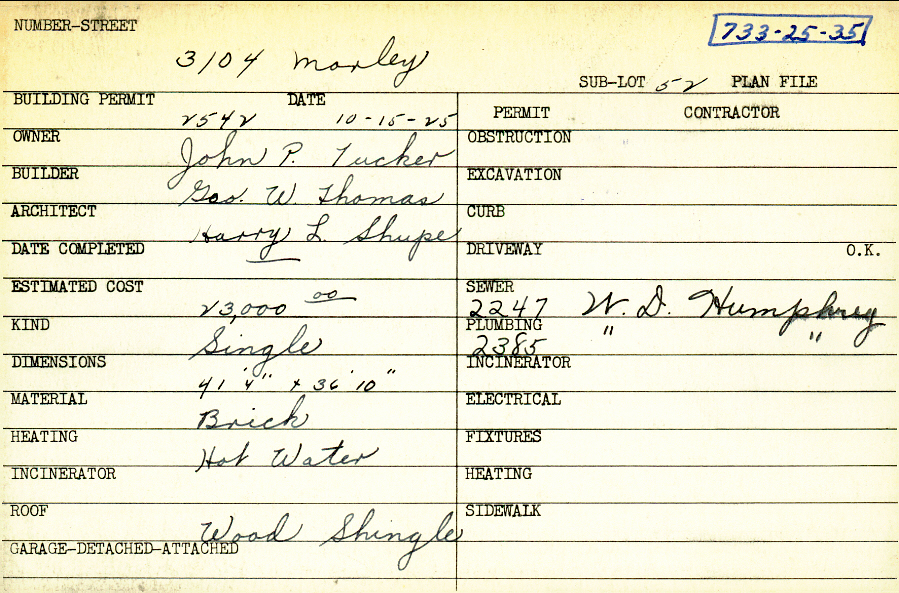 NUMBER-STREET
733-25-35
3104 Morley
SUB-LOT 52 PLAN FILE
BUILDING PERMIT DATE
2542 10-15-25
PERMIT CONTRACTOR
OWNER John P. Tucker
OBSTRUCTION
BUILDER Geo. W. Thomas
EXCAVATION
ARCHITECT Harry L. Shupe
CURB
DATE COMPLETED —
DRIVEWAY O.K.
ESTIMATED COST 23,000 00
SEWER 2247 W. D. Humphrey
KIND Single
PLUMBING 2385 " "
DIMENSIONS 41' 4" x 36' 10"
INCINERATOR
MATERIAL Brick
ELECTRICAL
HEATING Hot Water
FIXTURES
INCINERATOR
HEATING
ROOF Wood Shingle
SIDEWALK
GARAGE-DETACHED-ATTACHED